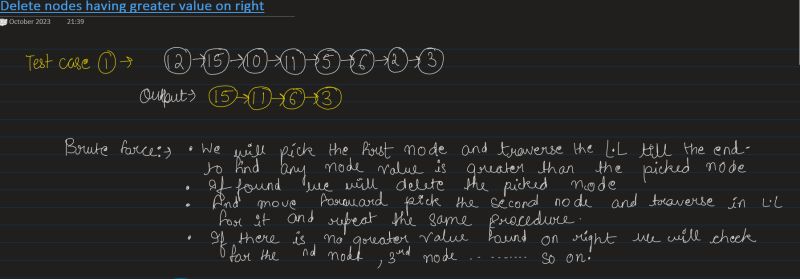 Delete nodes having greater value on right
October 2023 21:39
Test case ① → 12 → 15 → 10 → 11 → 5 → 6 → 2 → 3
Output → 15 → 11 → 6 → 3
Brute force:→ • We will pick the first node and traverse the L.L till the end-
to find any node value is greater than the picked node
• If found we will delete the picked node
• And move forward pick the second node and traverse in L.L
for it and repeat the same procedure.
• If there is no greater value found on right we will check
for the nd node, 3rd node .......... so on.